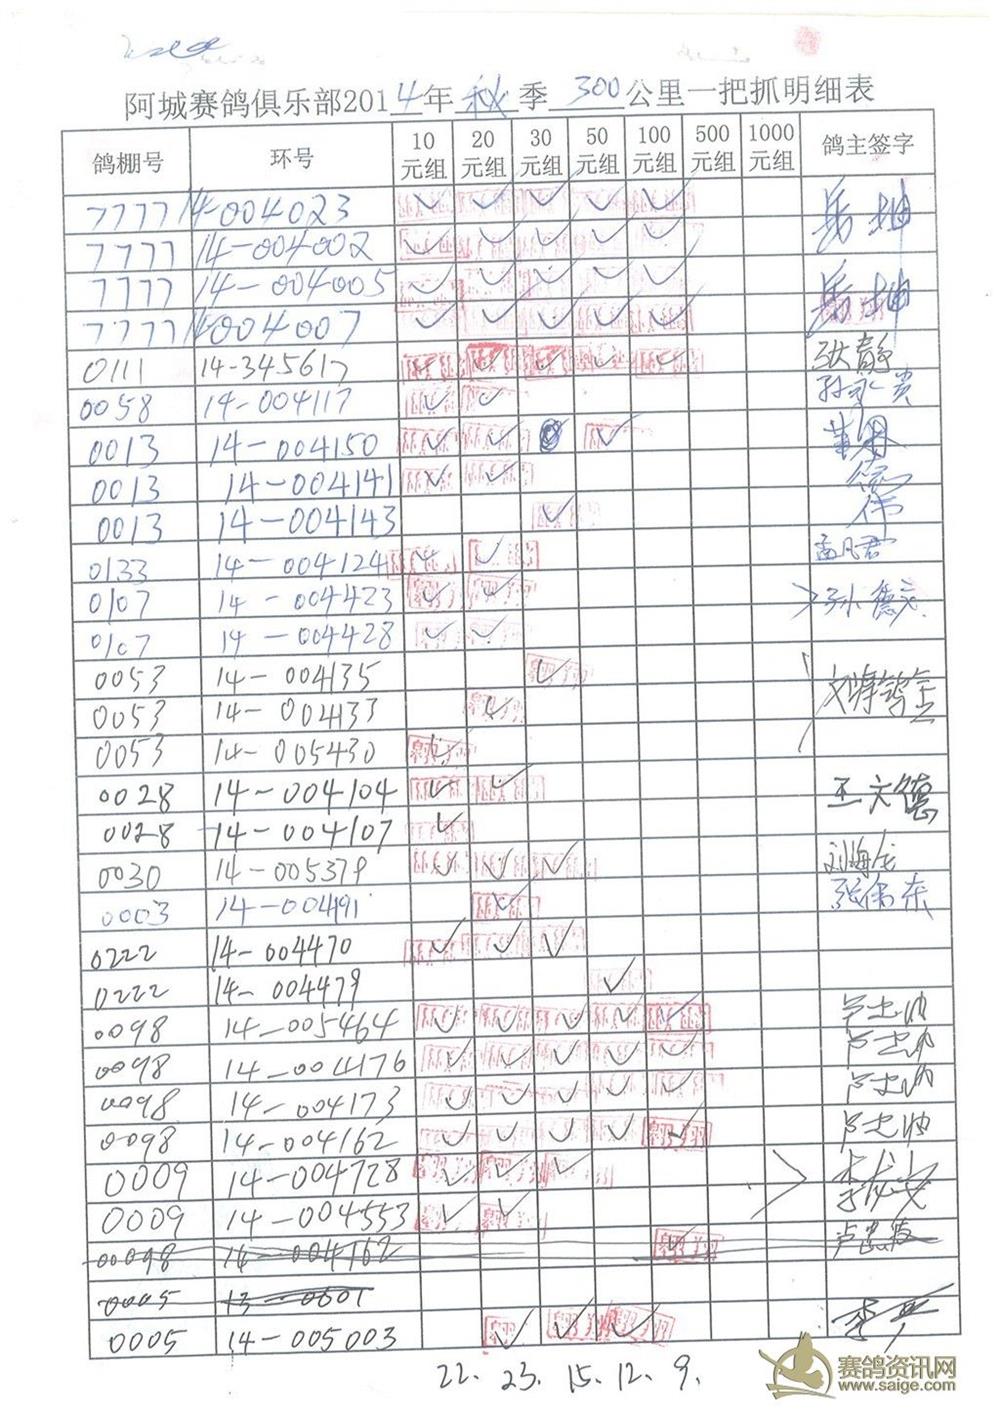 阿城赛鸽俱乐部2014年秋季300公里一把抓明细表
鸽棚号 环号 10元组 20元组 30元组 50元组 100元组 500元组 1000元组 鸽主签字
7777 14-004023 ✓ ✓ ✓ ✓ ✓
7777 14-004002 ✓ ✓ ✓ ✓ ✓
7777 14-004005 ✓ ✓ ✓ ✓ ✓
7777 14-004007 ✓ ✓ ✓ ✓ ✓
0111 14-345617 ✓ ✓ ✓ ✓ ✓ 张静
0058 14-004117 ✓ ✓ 孙永贵
0013 14-004150 ✓ ✓ ✓
0013 14-004141 ✓ ✓
0013 14-004143 ✓
0133 14-004124 ✓ ✓ 孟凡君
0107 14-004423 ✓ ✓ 孙德文
0107 14-004428 ✓ ✓
0053 14-004135 ✓
0053 14-004133 ✓
0053 14-005430 ✓
0028 14-004104 ✓ ✓ 王文德
0028 14-004107 ✓
0030 14-005379 ✓ ✓ ✓ 刘海龙
0003 14-004191 ✓ 张伟东
0222 14-004470 ✓ ✓ ✓
0222 14-004479 ✓
0098 14-005464 ✓ ✓ ✓ ✓ ✓
0098 14-004176 ✓ ✓ ✓ ✓ ✓
0098 14-004173 ✓ ✓ ✓ ✓ ✓
0098 14-004162 ✓ ✓ ✓ ✓ ✓
0009 14-004728 ✓ ✓ ✓
0009 14-004553 ✓ ✓
00098 14-004162 ✓
0005 13-0601
0005 14-005003 ✓ ✓ ✓
22. 23. 15. 12. 9.
赛鸽资讯网
www.saige.com